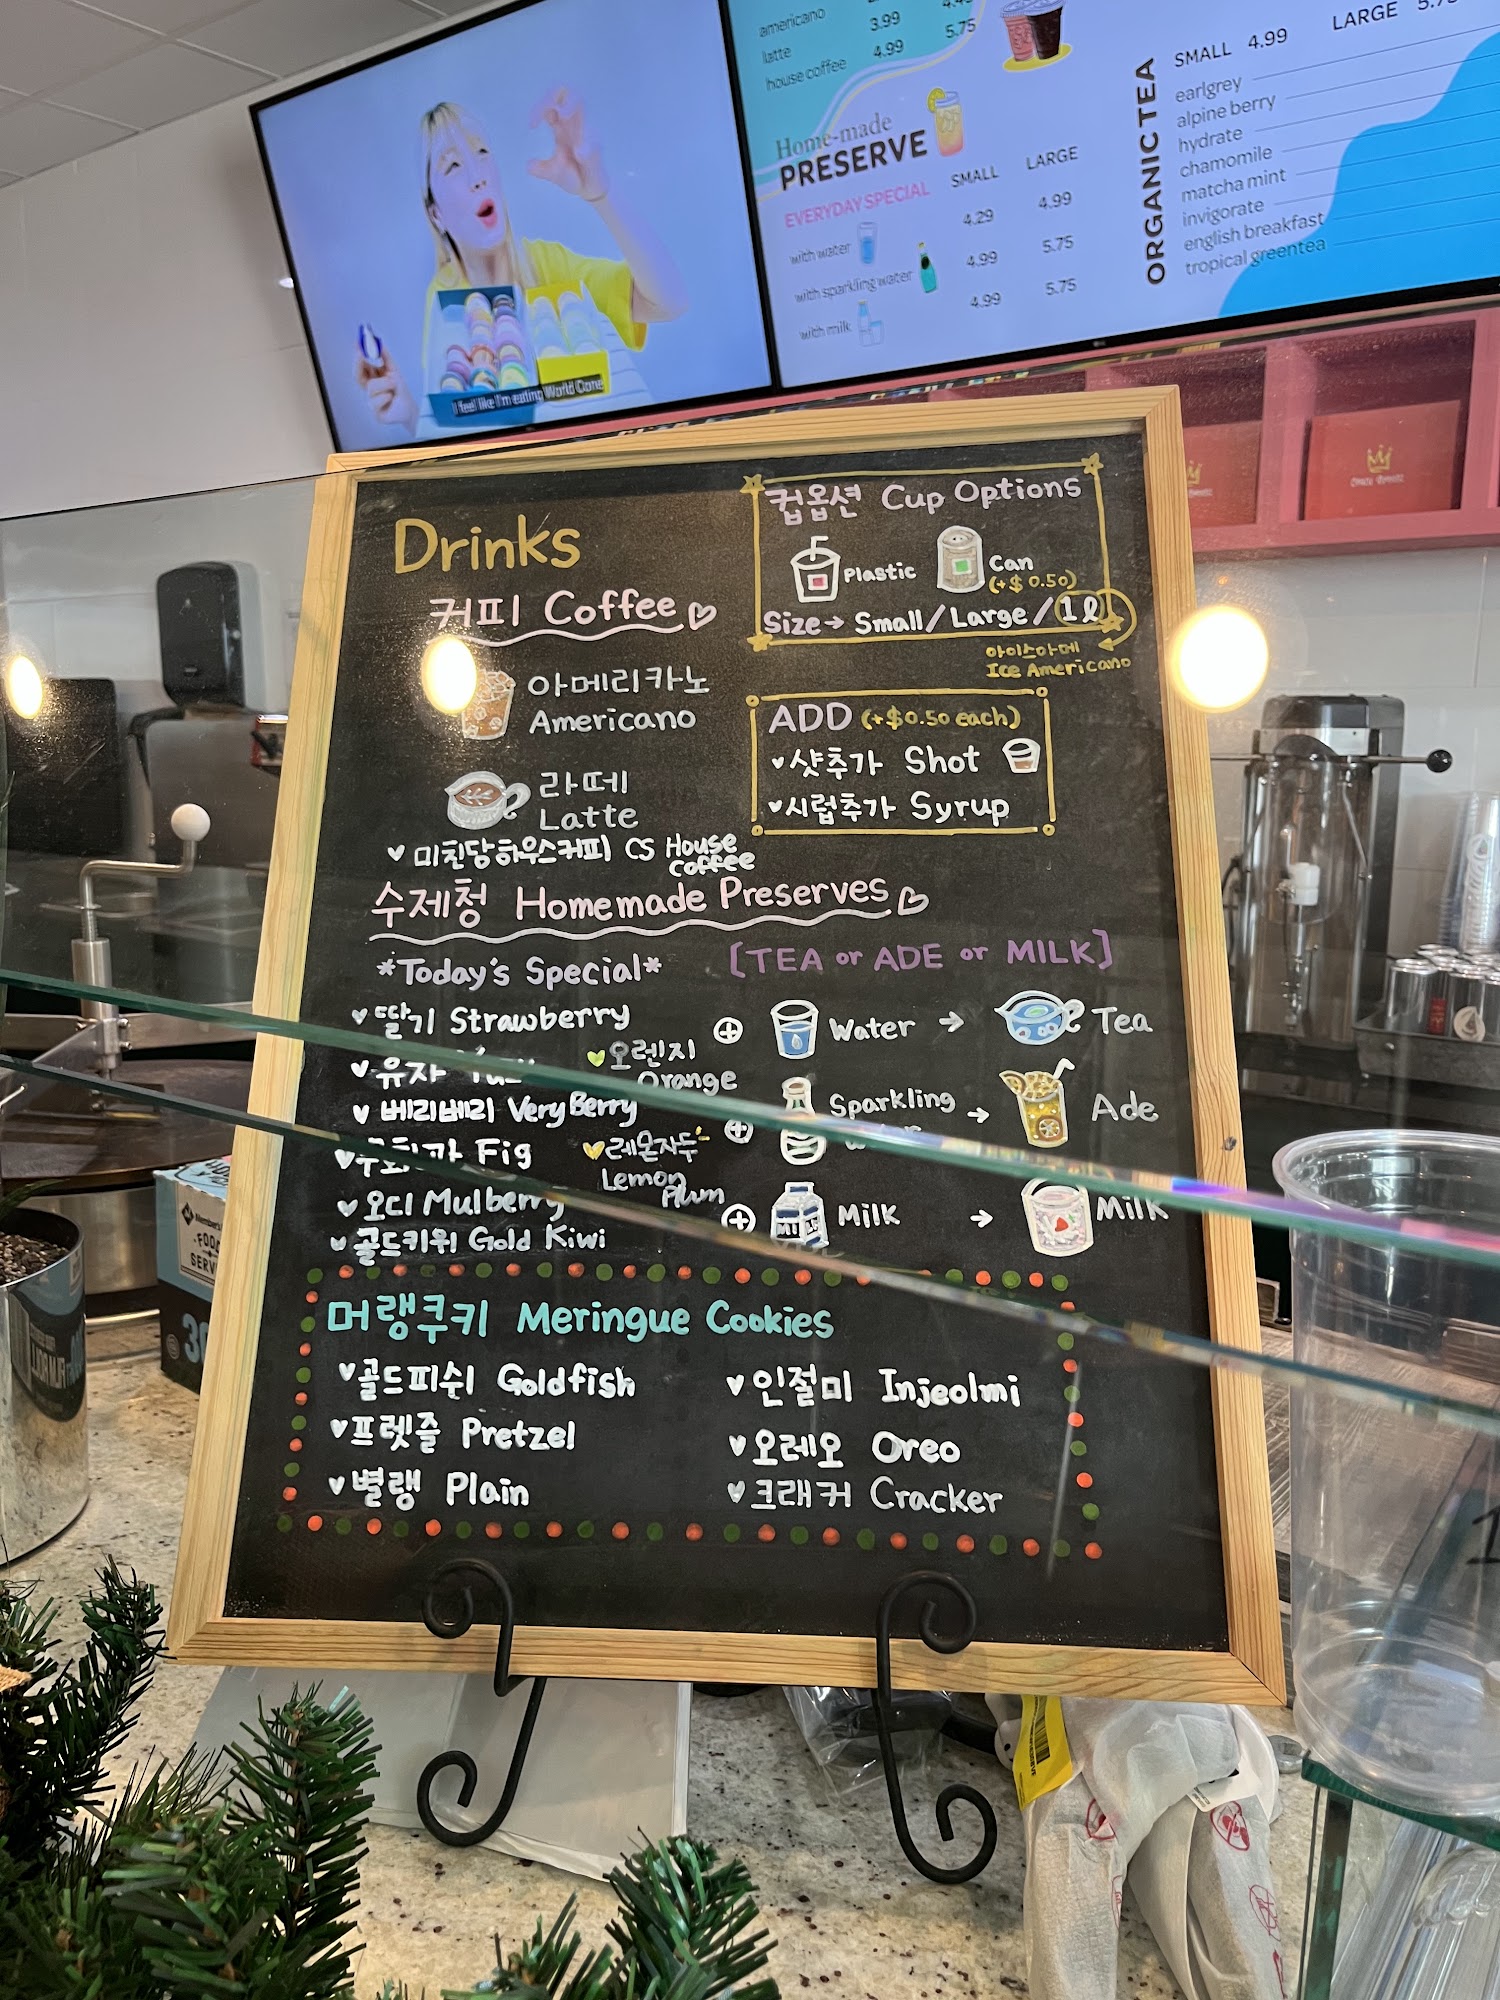 americano 3.99
latte 4.99 5.75
house coffee
Home-made
PRESERVE
EVERYDAY SPECIAL SMALL LARGE
with water 4.29 4.99
with sparkling water 4.99 5.75
with milk 4.99 5.75
ORGANIC TEA
SMALL 4.99 LARGE
earlgrey
alpine berry
hydrate
chamomile
matcha mint
invigorate
english breakfast
tropical greentea
I feel like I'm eating World Cone
Drinks
컵옵션 Cup Options
Plastic
Can
(+$0.50)
Size → Small/Large/1ℓ
아이스아메
Ice Americano
커피 Coffee
아메리카노
Americano
라떼
Latte
미친당하우스커피 CS House
Coffee
ADD (+$0.50 each)
샷추가 Shot
시럽추가 Syrup
수제청 Homemade Preserves
*Today's Special*
[TEA or ADE or MILK]
딸기 Strawberry
유자
오렌지
Orange
베리베리 Very Berry
Fig
레몬자두
Lemon
Plum
오디 Mulberry
골드키위 Gold Kiwi
+ Water → Tea
+ Sparkling → Ade
+ MILK Milk → Milk
머랭쿠키 Meringue Cookies
골드피쉬 Goldfish
프렛즐 Pretzel
별랭 Plain
인절미 Injeolmi
오레오 Oreo
크래커 Cracker